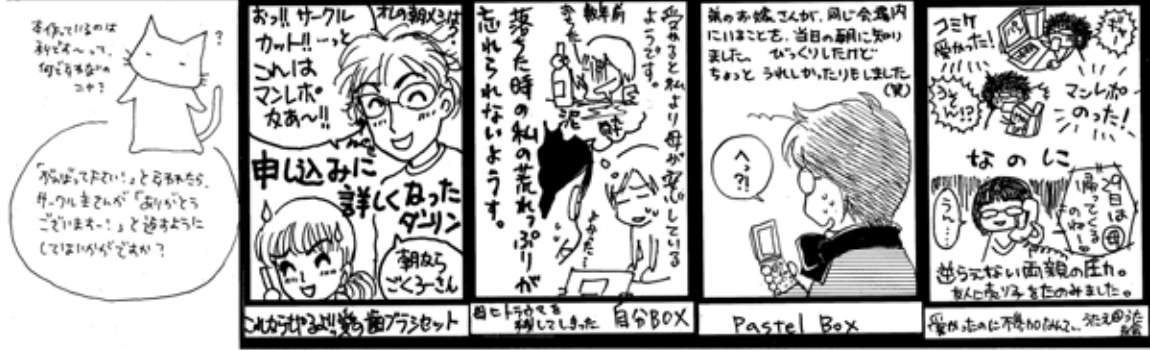 本作っているのは
私です〜って、
?
「がんばって下さい!」と言われたら、
サークル主さんが「ありがとう
ございます〜!」と返すように
してはいかがですか?
おっ!!サークル
カット!!…っと
これは
マンレポ
なぁ〜!!
オレの朝メシは?
申し込みに
詳しくなった
ダーリン
朝なら
ごくろーさん
歯ブラシセット
受かると私より母が恋している
ようです。
数年前
泥
酔
落ちた時の私の荒れっぷりが
忘れられないようす。
自分BOX
弟のお嫁さんが、同じ会場内
にいることを、当日の朝に知り
ました。びっくりしたけど
ちょっとうれしかったりもしました。
(笑)
へっ?!
Pastel Box
コミケ
受かった!
ギャー
うそぉん!?
マンレポ
のった!
なのに
29日は
帰ってくる
のねー
母
うん…
逆らえない両親の圧力。
友人に売り子をたのみました。
受かったのに不参加なんて、